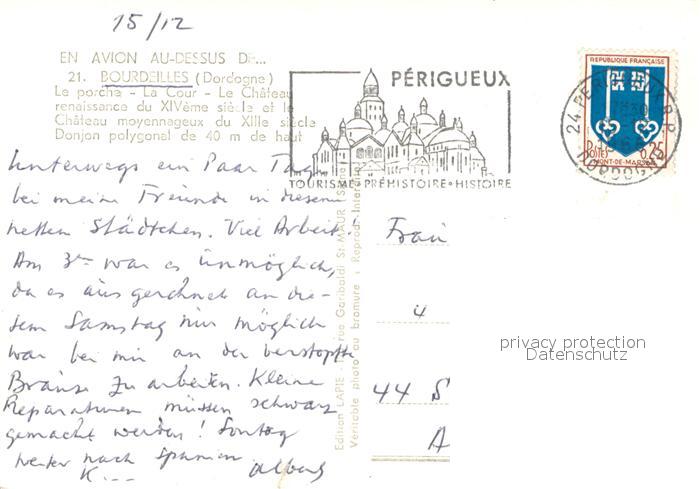 15/12
EN AVION AU-DESSUS DE...
21. BOURDEILLES (Dordogne)
Le porche - La Cour - Le Château
renaissance du XIVème siècle et le
Château moyennageux du XIIIe siècle
Donjon polygonal de 40 m de haut
PÉRIGUEUX
TOURISME • PRÉHISTOIRE • HISTOIRE
REPUBLIQUE FRANÇAISE
POSTES 0,25
MONT-DE-MARSAN
24 PERIGUEUX R.P.
DORDOGNE
Unterwegs ein Paar Tage
bei meine Freunde in diesem
netten Städtchen. Viel Arbeit!
Am 3ten war es unmöglich,
da es ausgerechnet an die-
sem Samstag nur möglich
war bei mir an der verstopfte
Brause zu arbeiten. Kleine
Reparaturen müssen schwarz
gemacht werden! Sontag
weiter nach Spanien
K...
Frau
44 S
A
Edition LAPIE - rue Garibaldi St-MAUR (Seine)
Véritable photo au bromure - Reprod. Interdite
privacy protection
Datenschutz